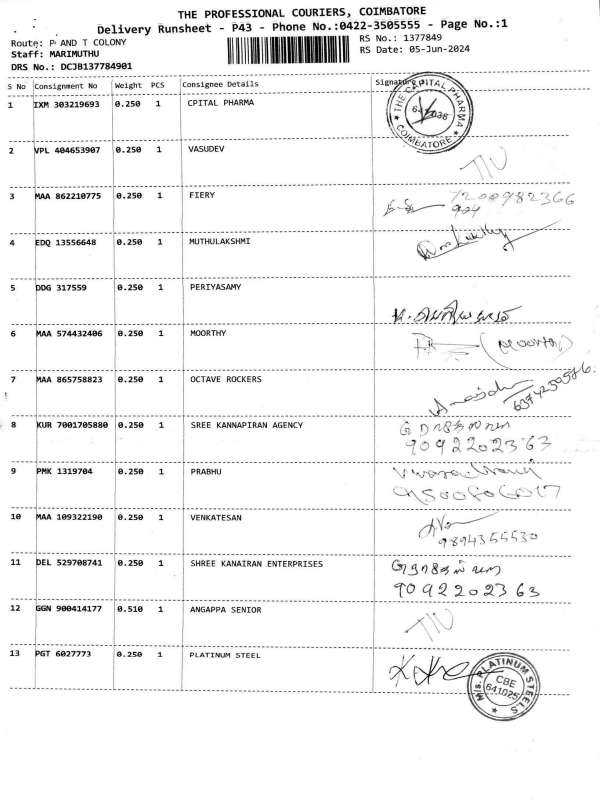 THE PROFESSIONAL COURIERS, COIMBATORE
Delivery Runsheet - P43 - Phone No.:0422-3505555 - Page No.:1
Route: P AND T COLONY
RS No.: 1377849
Staff: MARIMUTHU
RS Date: 05-Jun-2024
DRS No.: DCJB137784901
S No Consignment No Weight PCS Consignee Details Signature
1 IXM 303219693 0.250 1 CPITAL PHARMA
THE CAPITAL PHARMA
COIMBATORE
2 VPL 404653907 0.250 1 VASUDEV
3 MAA 862210775 0.250 1 FIERY
7200982366
4 EDQ 13556648 0.250 1 MUTHULAKSHMI
5 DDG 317559 0.250 1 PERIYASAMY
6 MAA 574432406 0.250 1 MOORTHY
7 MAA 865758823 0.250 1 OCTAVE ROCKERS
6374259576
8 KUR 7001705880 0.250 1 SREE KANNAPIRAN AGENCY
9092202363
9 PMK 1319704 0.250 1 PRABHU
9500606017
10 MAA 109322190 0.250 1 VENKATESAN
9894355530
11 DEL 529708741 0.250 1 SHREE KANAIRAN ENTERPRISES
9092202363
12 GGN 900414177 0.510 1 ANGAPPA SENIOR
13 PGT 6027773 0.250 1 PLATINUM STEEL
M/s. PLATINUM STEELS
CBE
641025